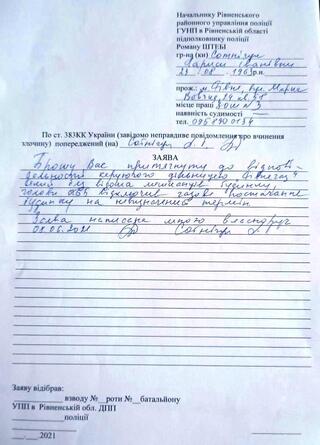 Начальнику Рівненського
районного управління поліції
ГУНП в Рівненській області
підполковнику поліції
Роману ШТЕБІ
гр-на (ки) Сотнічук
Лариси Іванівни
21 08 1963 р.н.
прож.: м. Рівне, вул. Марка
Вовчка,
місце праці ЗОШ N3
наявність судимості —
тел.
По ст. 383КК України (завідомо неправдиве повідомлення про вчинення
злочину) попереджений (на) Сотнічук Л. І.
ЗАЯВА
Прошу Вас притягнути до відпові-
дальності керуючого дільницею Рівнегаз
який без відома мешканців будинку,
голови ОББ відключив газове постачання
будинку на невизначений термін
Заява написана мною власноруч
08.06.2021 Сотнічук Л.
Заяву відібрав:
взводу №__роти №__батальйону
УПП в Рівненській обл. ДПП
поліції
__.__.2021